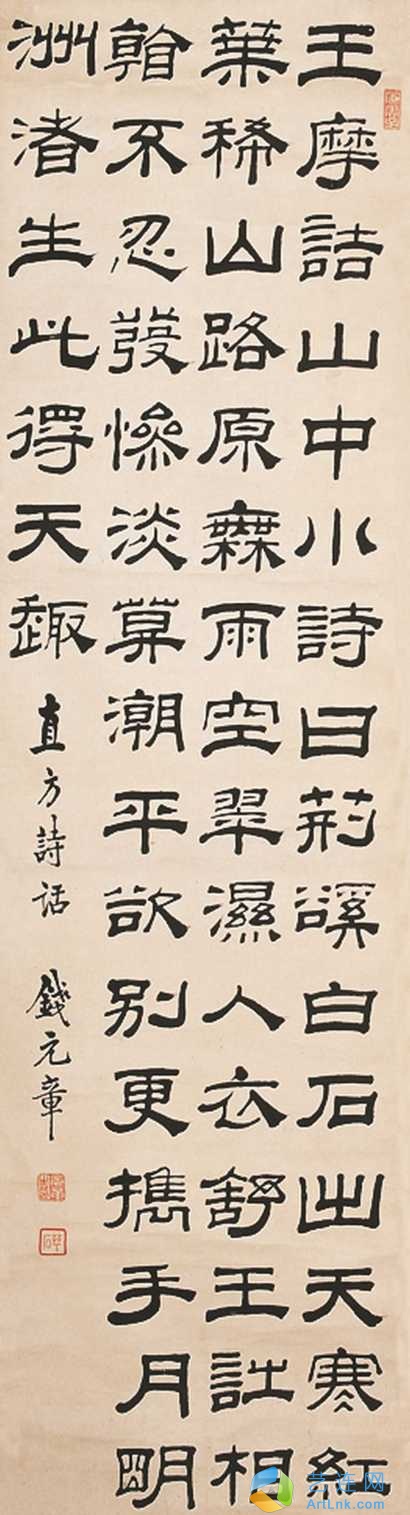 王摩詰山中小詩曰荊谿白石出天寒紅
葉稀山路原無雨空翠濕人衣舒王詩相
看不忍發慘淡暮潮平欲別更攜手月明
洲渚生此得天趣
直方詩話 錢元章
艺连网
ArtLnk.com